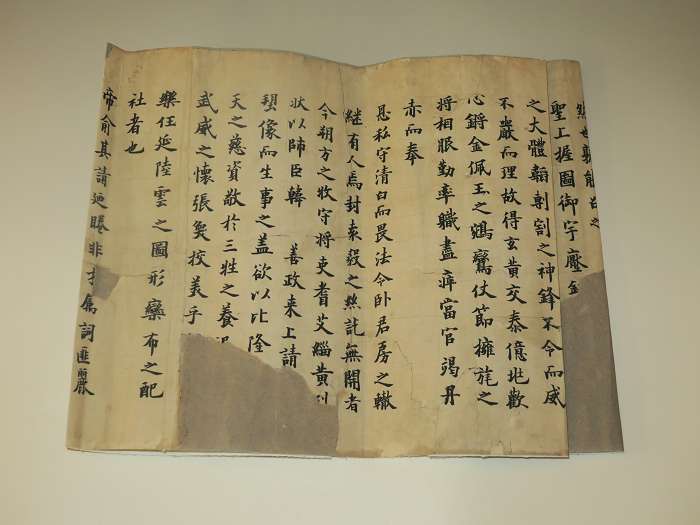 能之
聖上握圖御宇
之大體韜剸割之神鋒不令而威
不嚴而理故得玄黃交泰億兆歡
心鏘金佩玉之鵷鸞仗節擁旄之
將相眼勤率職盡瘁當官竭丹
赤而奉
恩私守清白而畏法令卧君房之轍
継有人焉封袁毅之絲訖無開者
今朔方之牧守將吏耆艾緇黃列
狀以師臣韓 善政来上請
塑像而生事之盖欲以比隆
天之慈資敬於三牲之養
武威之懷張奐挍美乎
樂任延陸雲之圖形欒布之配
社者也
帝俞其請睠非才屬詞匪麗